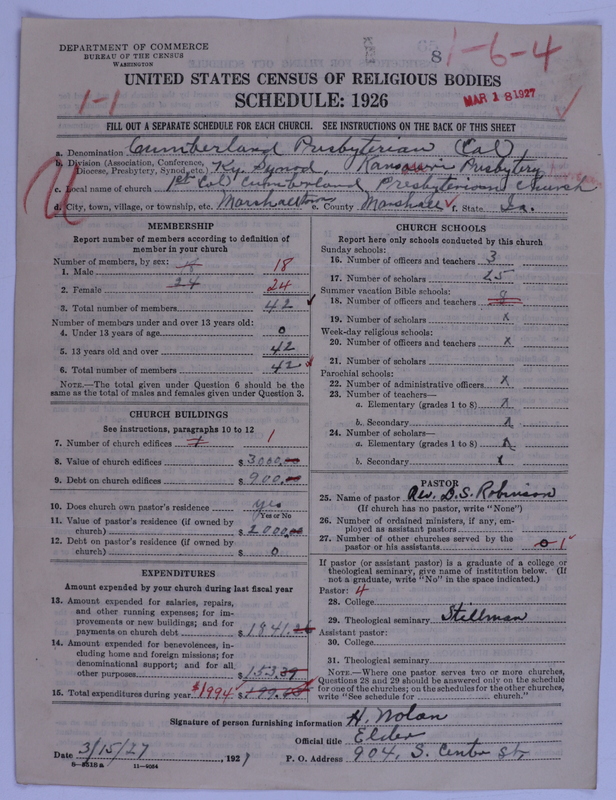 DEPARTMENT OF COMMERCE
BUREAU OF THE CENSUS
WASHINGTON
8 1-6-4
UNITED STATES CENSUS OF RELIGIOUS BODIES
1-1 SCHEDULE: 1926 MAR 18 1927
FILL OUT A SEPARATE SCHEDULE FOR EACH CHURCH. SEE INSTRUCTIONS ON THE BACK OF THIS SHEET
a. Denomination Cumberland Presbyterian (Col)
b. Division (Association, Conference, Diocese, Presbytery, Synod, etc.) Ky. Synod, Presbytery
c. Local name of church 1st Col Cumberland Presbyterian Church
d. City, town, village, or township, etc. Marshalltown e. County Marshall f. State Ia.
MEMBERSHIP
Report number of members according to definition of
member in your church
Number of members, by sex:
1. Male 18
2. Female 24 24
3. Total number of members 42
Number of members under and over 13 years old:
4. Under 13 years of age 0
5. 13 years old and over 42
6. Total number of members 42
NOTE.—The total given under Question 6 should be the
same as the total of males and females given under Question 3.
CHURCH BUILDINGS
See instructions, paragraphs 10 to 12
7. Number of church edifices 1 1
8. Value of church edifices $ 3000.00
9. Debt on church edifices $ 900.00
10. Does church own pastor's residence yes
Yes or No
11. Value of pastor's residence (if owned by
church) $ 2000.00
12. Debt on pastor's residence (if owned by
church) $ 0
EXPENDITURES
Amount expended by your church during last fiscal year
13. Amount expended for salaries, repairs,
and other running expenses; for im-
provements or new buildings; and for
payments on church debt $ 1841.
14. Amount expended for benevolences, in-
cluding home and foreign missions; for
denominational support; and for all
other purposes $ 153.39
15. Total expenditures during year $1994 $
CHURCH SCHOOLS
Report here only schools conducted by this church
Sunday schools:
16. Number of officers and teachers 3
17. Number of scholars 25
Summer vacation Bible schools:
18. Number of officers and teachers
19. Number of scholars x
Week-day religious schools:
20. Number of officers and teachers x
21. Number of scholars
Parochial schools:
22. Number of administrative officers x
23. Number of teachers—
a. Elementary (grades 1 to 8) x
b. Secondary x
24. Number of scholars—
a. Elementary (grades 1 to 8) x
b. Secondary x
PASTOR
25. Name of pastor Rev. D.S. Robinson
(If church has no pastor, write "None")
26. Number of ordained ministers, if any, em-
ployed as assistant pastors
27. Number of other churches served by the
pastor or his assistants 0 1
If pastor (or assistant pastor) is a graduate of a college or
theological seminary, give name of institution below. (If
not a graduate, write "No" in the space indicated.)
Pastor: 4
28. College
29. Theological seminary Stillman
Assistant pastor:
30. College
31. Theological seminary
NOTE.—Where one pastor serves two or more churches,
Questions 28 and 29 should be answered only on the schedule
for one of the churches; on the schedules for the other churches,
write "See schedule for church."
Signature of person furnishing information H. Nolan
Official title Elder
Date 3/15/27, 1927 P. O. Address 904. S. Center St.
8-5518a 11-9064